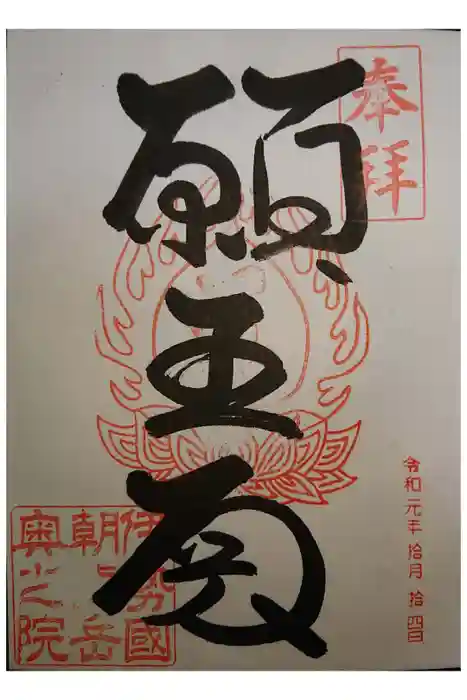 奉拝
願王殿
伊勢國
朝熊岳
奥之院
令和元年 拾月 拾四日